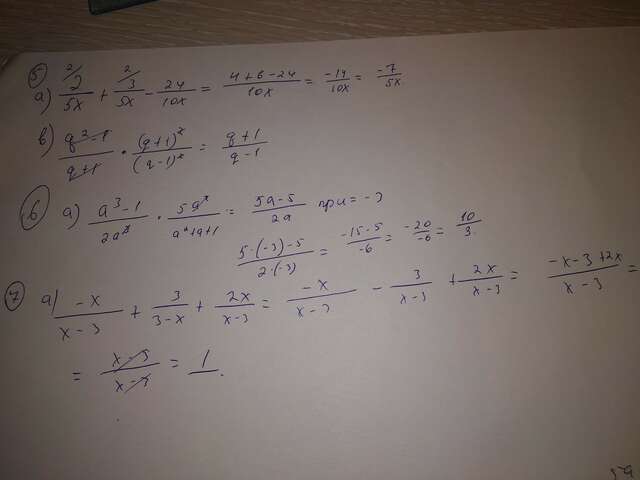 5
a) 2/5x + 3/5x - 24/10x = (4+6-24)/10x = -14/10x = -7/5x
в) (q²-1)/(q+1) · (q+1)²/(q-1)² = (q+1)/(q-1)
6 a) (a³-1)/2a³ · 5a²/(a²+a+1) = (5a-5)/2a при = -3
(5·(-3)-5)/(2·(-3)) = (-15-5)/-6 = -20/-6 = 10/3.
7 a) -x/(x-3) + 3/(3-x) + 2x/(x-3) = -x/(x-3) - 3/(x-3) + 2x/(x-3) = (-x-3+2x)/(x-3) =
= (x-3)/(x-3) = 1.